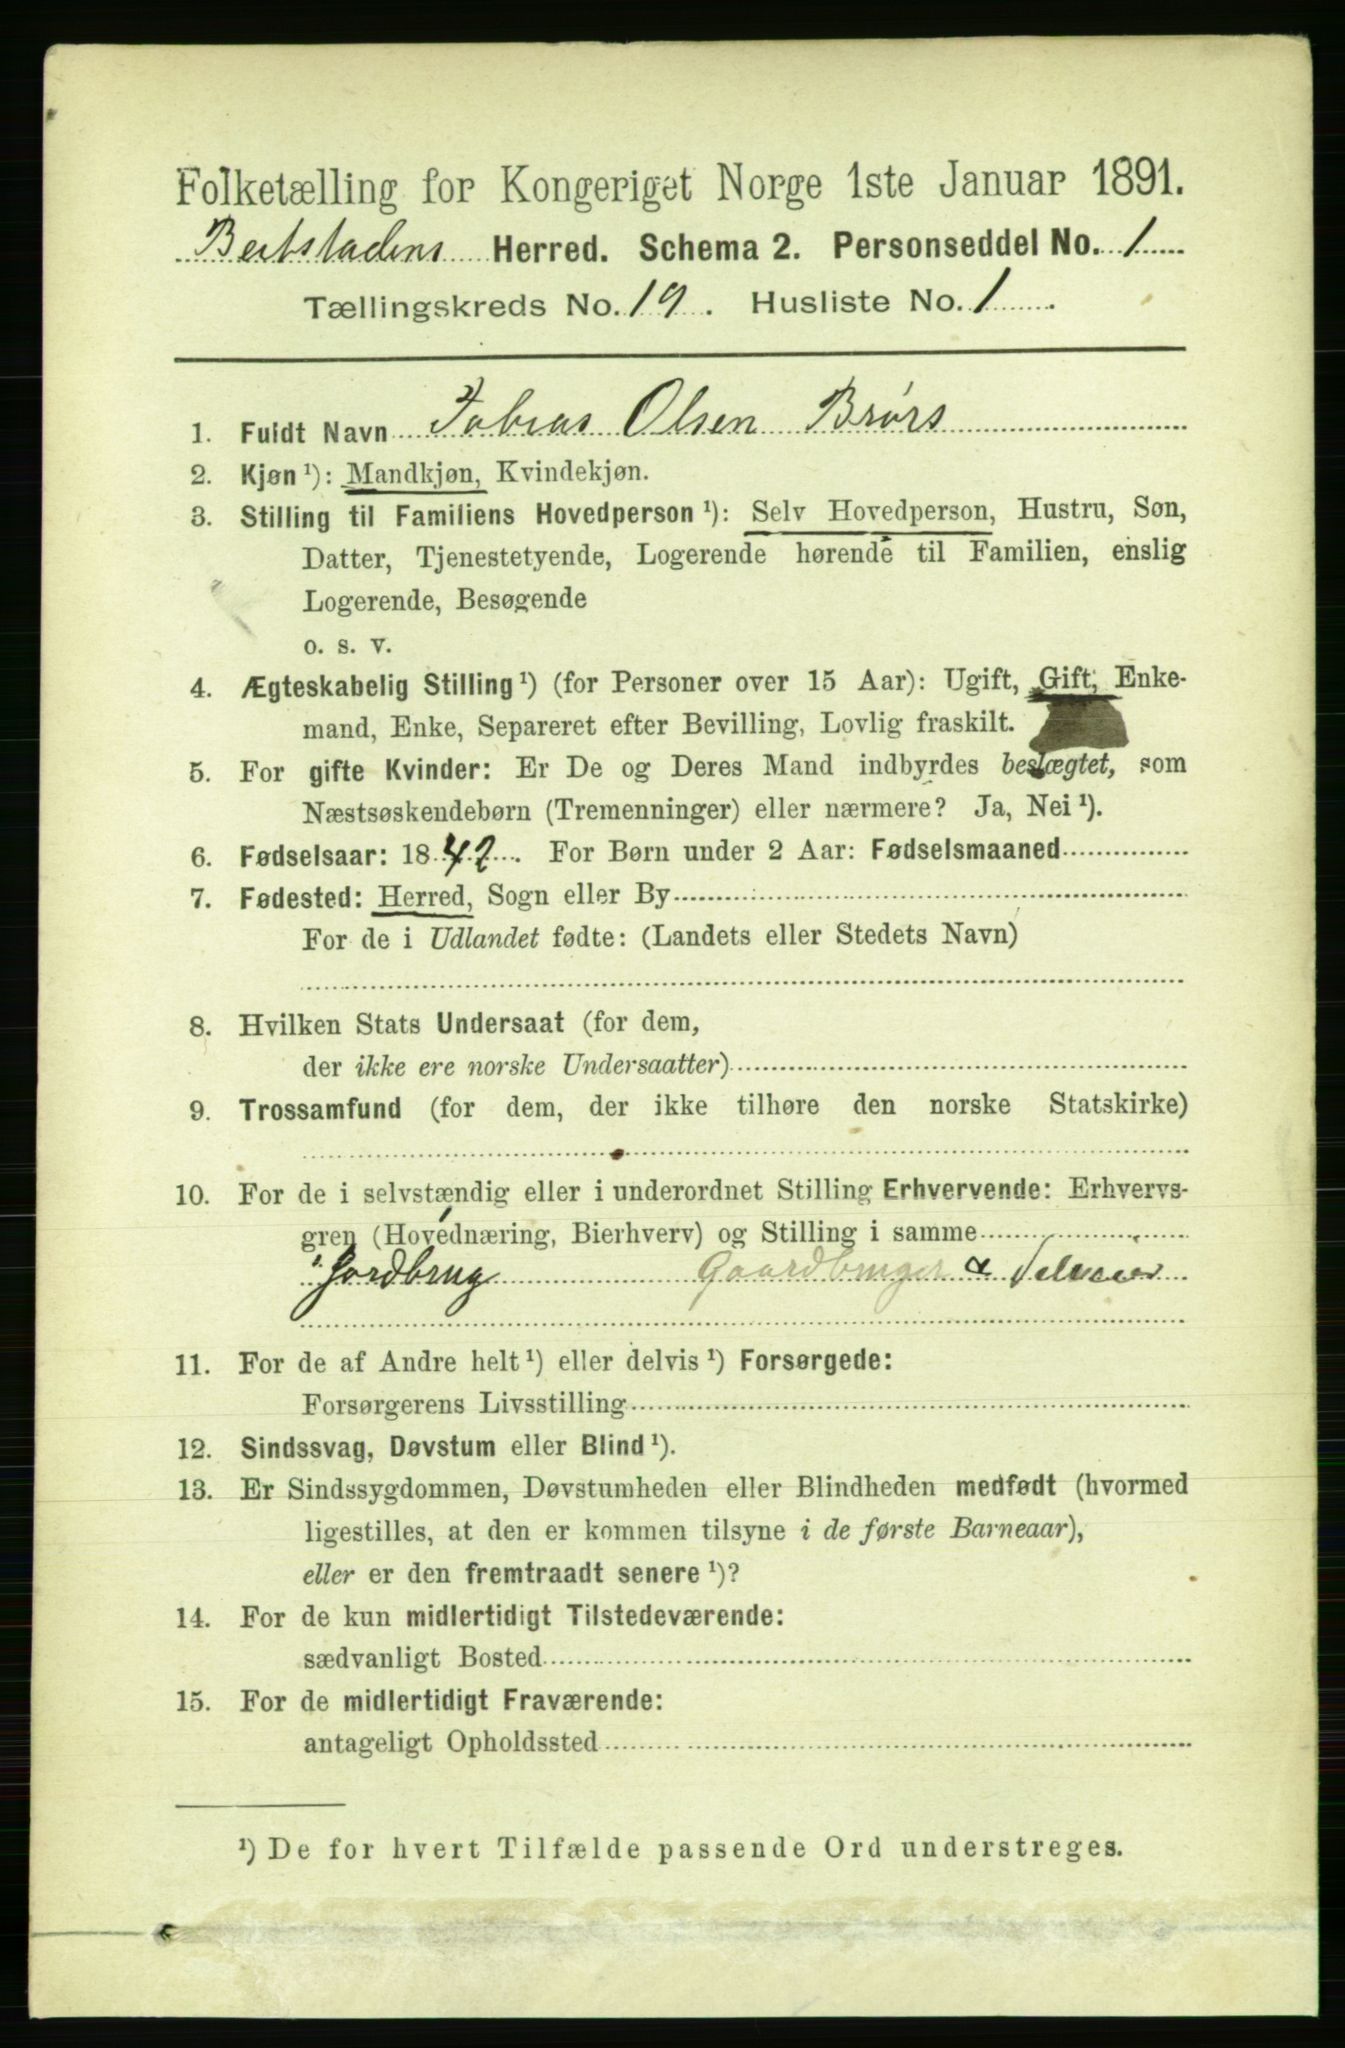 Folketælling for Kongeriget Norge 1ste Januar 1891.
Beitstadens Herred. Schema 2. Personseddel No. 1
Tællingskreds No. 19. Husliste No. 1.
1. Fuldt Navn Tobias Olsen Brørs
2. Kjøn ¹): Mandkjøn, Kvindekjøn.
3. Stilling til Familiens Hovedperson ¹): Selv Hovedperson, Hustru, Søn,
Datter, Tjenestetyende, Logerende hørende til Familien, enslig
Logerende, Besøgende
o. s. v.
4. Ægteskabelig Stilling ¹) (for Personer over 15 Aar): Ugift, Gift, Enke-
mand, Enke, Separeret efter Bevilling, Lovlig fraskilt.
5. For gifte Kvinder: Er De og Deres Mand indbyrdes beslægtet, som
Næstsøskendebørn (Tremenninger) eller nærmere? Ja, Nei ¹).
6. Fødselsaar: 1842. For Børn under 2 Aar: Fødselsmaaned
7. Fødested: Herred, Sogn eller By
For de i Udlandet fødte: (Landets eller Stedets Navn)
8. Hvilken Stats Undersaat (for dem,
der ikke ere norske Undersaatter)
9. Trossamfund (for dem, der ikke tilhøre den norske Statskirke)
10. For de i selvstændig eller i underordnet Stilling Erhvervende: Erhvervs-
gren (Hovednæring, Bierhverv) og Stilling i samme
Jordbrug Gaardbruger & Selveier
11. For de af Andre helt ¹) eller delvis ¹) Forsørgede:
Forsørgerens Livsstilling
12. Sindssvag, Døvstum eller Blind ¹).
13. Er Sindssygdommen, Døvstumheden eller Blindheden medfødt (hvormed
ligestilles, at den er kommen tilsyne i de første Barneaar),
eller er den fremtraadt senere ¹)?
14. For de kun midlertidigt Tilstedeværende:
sædvanligt Bosted
15. For de midlertidigt Fraværende:
antageligt Opholdssted
¹) De for hvert Tilfælde passende Ord understreges.